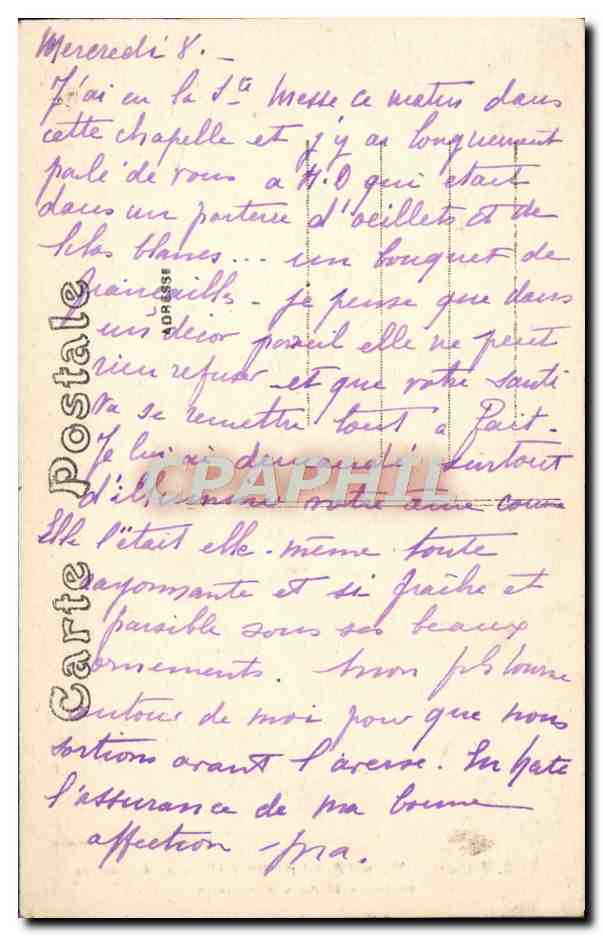 Mercredi 8. _
J'ai eu la Ste Messe ce matin dans
cette chapelle et j'y ai longuement
parlé de vous a N.D qui était
dans un parterre d'oeillets et de
lilas blancs... un bouquet de
fiançailles _ je pense que dans
un décor pareil elle ne peut
rien refuser et que votre santé
va se remettre tout à fait _
Je lui ai demandé surtout
d'illuminer votre âme comme
Elle l'était elle-même toute
rayonnante et si fraîche et
paisible sous ses beaux
ornements. Mon fils tourne
autour de moi pour que nous
sortions avant l'averse. En hate
l'assurance de ma bonne
affection
Carte Postale
ADRESSE
CPAPHIL